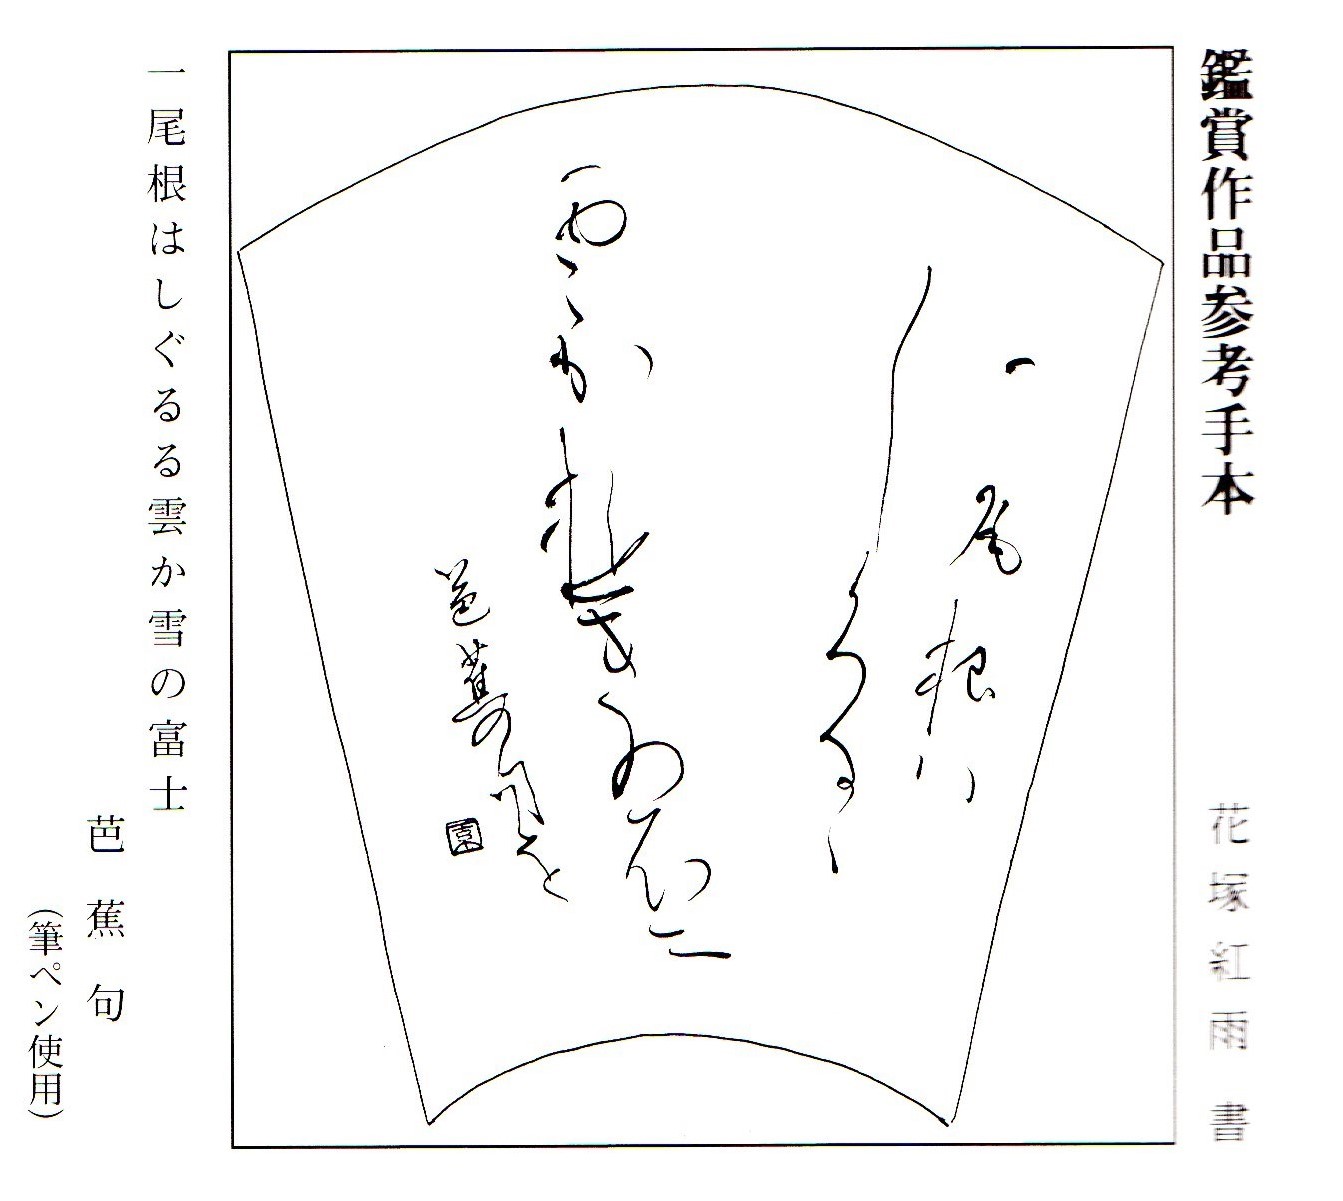 鑑賞作品参考手本
花塚紅雨 書
一尾根ハ
しくるゝ
雲か遊きの不二
芭蕉の句を
一尾根はしぐるる雲か雪の富士
芭蕉句
(筆ペン使用)